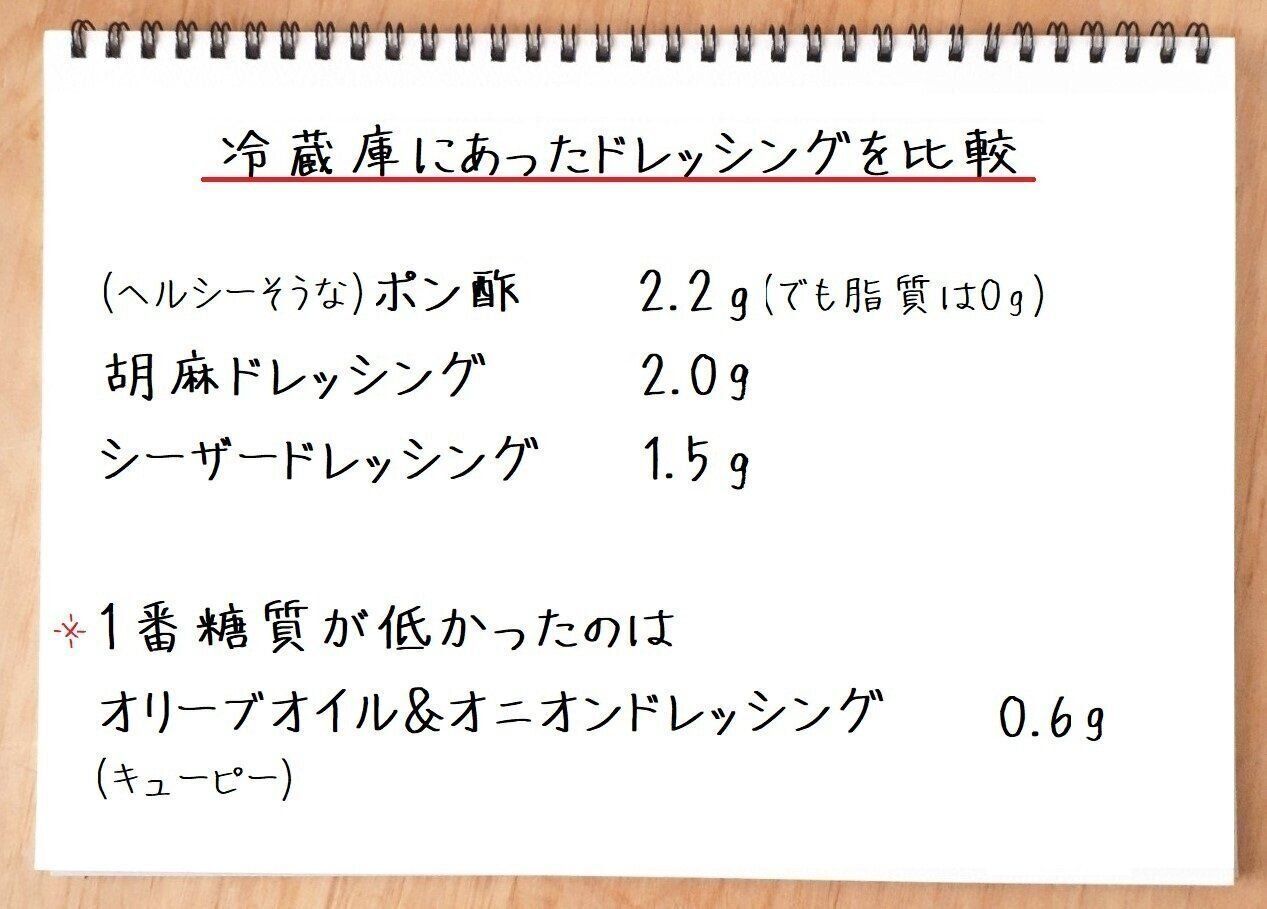 冷蔵庫にあったドレッシングを比較
(ヘルシーそうな)ポン酢 2.2g(でも脂質は0g)
胡麻ドレッシング 2.0g
シーザードレッシング 1.5g
※1番糖質が低かったのは
オリーブオイル&オニオンドレッシング 0.6g
(キューピー)